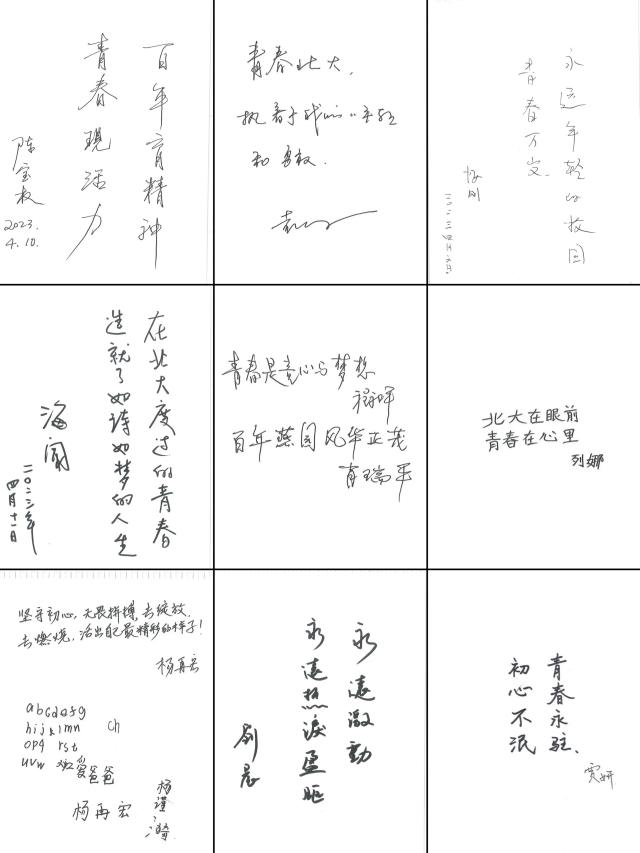 百年育精神
青春现活力
陈宝
2023.
4.10.
青春北大，
执着于我们的年轻
和勇敢.
永远年轻的校园
青春万岁
在北大度过的青春
造就了如诗如梦的人生
海闻
二〇二三年
四月十一日
青春是童心与梦想
百年燕园风华正茂
肖瑞平
北大在眼前
青春在心里
列娜
坚守初心，无畏拼搏，去绽放，
去燃烧，活出自己最精彩的样子！
杨再宏
abcdefg
hijklmn
ch
opq rst
uvw xyz
爱爸爸
杨再宏
杨瑾
永远激动
永远热泪盈眶
刘晨
青春永驻、
初心不泯
贾妍